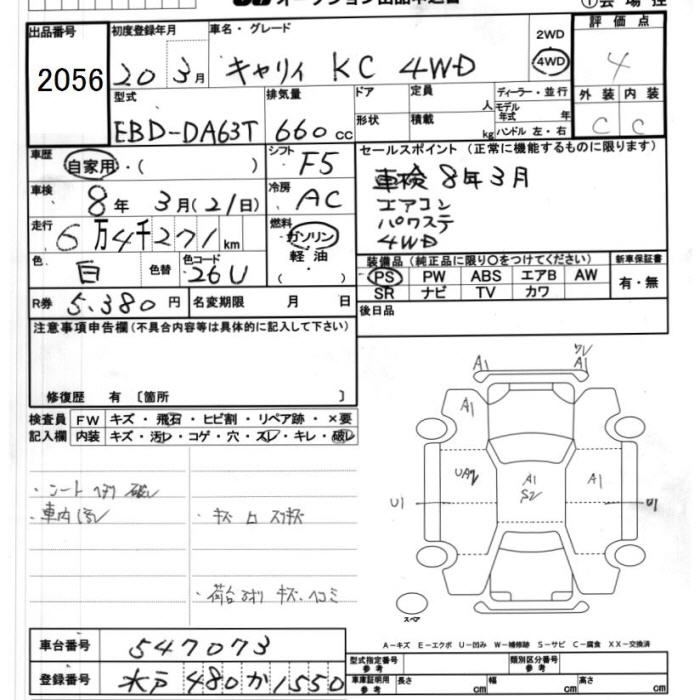 オークション出品申込書
出品番号 2056
初度登録年月 20 3月
車名・グレード キャリィ KC 4WD
2WD
4WD
評価点 4
外装 内装
C C
型式 EBD-DA63T
排気量 660cc
ドア
形状
定員 人
積載 kg
ディーラー・並行
モデル年式 年
ハンドル 左・右
車歴 自家用・( )
シフト F5
セールスポイント (正常に機能するものに限ります)
車検 8年3月
エアコン
パワステ
4WD
車検 8年 3月(21日)
冷房 AC
走行 6万4千271km
燃料 ガソリン
軽油
( )
色 白 色替 色コード 26U
装備品(純正品に限り○をつけてください) 新車保証書
PS PW ABS エアB AW
SR ナビ TV カワ
有・無
R券 5,380円 名変期限 月 日
後日品
注意事項申告欄(不具合内容等は具体的に記入して下さい)
修復歴 有 〔箇所 〕
検査員記入欄
FW キズ・飛石・ヒビ割・リペア跡・×要
内装 キズ・汚レ・コゲ・穴・スレ・キレ・破レ
・シート 破レ
・車内汚レ
・キズ
・荷台 キズ、ヘコミ
A1 A1
A1
UA2 A1 S2 A1
U1 U1
スペア
A-キズ E-エクボ U-凹み W-補修跡 S-サビ C-腐食 XX-交換済
車台番号 547073
登録番号 水戸 480 か 1550
型式指定番号 参考
類別区分番号 参考
車庫証明用 参考 長さ cm 幅 cm 高さ cm